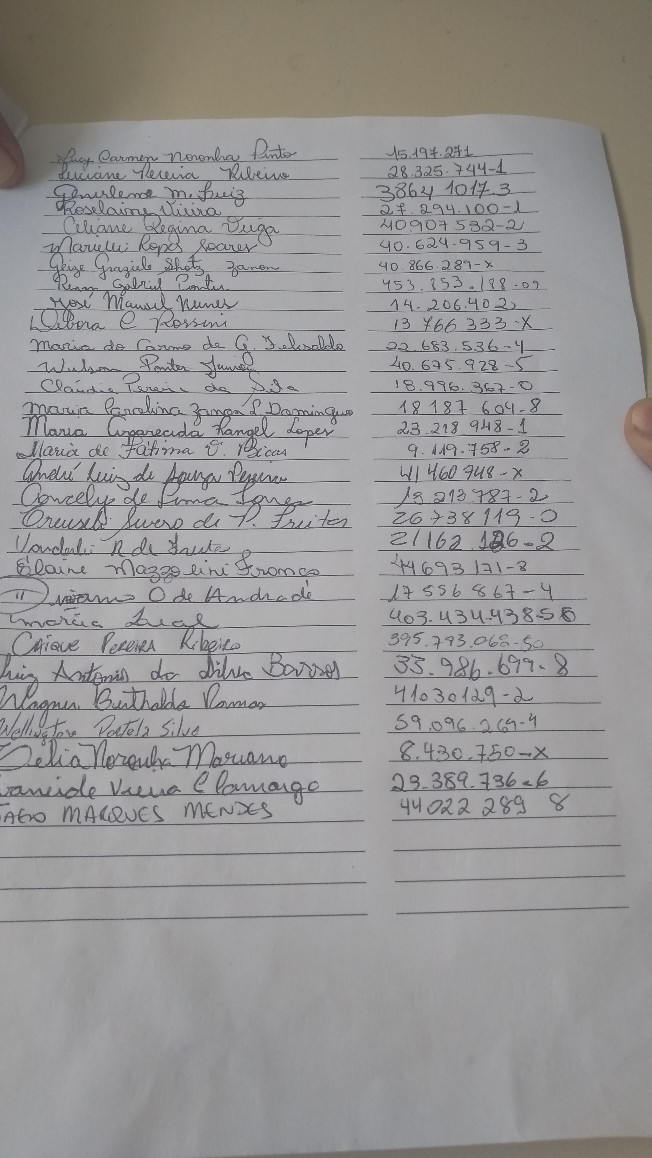 Luiz Carmen Noronha Pinto 15.197.271
Luciane Pereira Ribeiro 28.325.744-1
Genirleme M. Luiz 3864 1017.3
Roselaine Vieira 27.294.100-1
Celiane Regina Veiga 40907592-2
Marieli Lopes Soares 40.624.959-3
Geize Graziele Shotz Zanon 40.866.289-X
Renan Gabriel Pontes 453.853.188-09
José Manoel Nunes 14.206.402
Debora C Rossini 13 766 333-X
Maria do Carmo de G. 22.683.536-4
Wilson Pontes Junior 40.675.928-5
Claudia Pereira da Silva 18.996.367-0
Maria Carolina Zanon P. Domingues 18 187 604-8
Maria Aparecida Rangel Lopes 23.218 948-1
Maria de Fátima O. 9.119.758-2
André Luiz de Souza Pereira 41 460 748-X
de Lima 13 213 787-2
Severo de P. Freitas 26738119-0
R de 21162 126-2
Elaine Mazzolini 44693171-8
O de Andrade 17 556 867-4
marcia 403.434438-50
Caique Pereira Ribeiro 395.793.068-50
Luiz Antonio da Silva Barros 33.986.699-8
Wagner Berthaldo Ramos 41030129-2
Wellington Portela Silva 59.096.269-4
Célia Noronha Mariano 8.430.750-X
Vieira C Camargo 29.389.736-6
MARQUES MENDES 44022 289 8